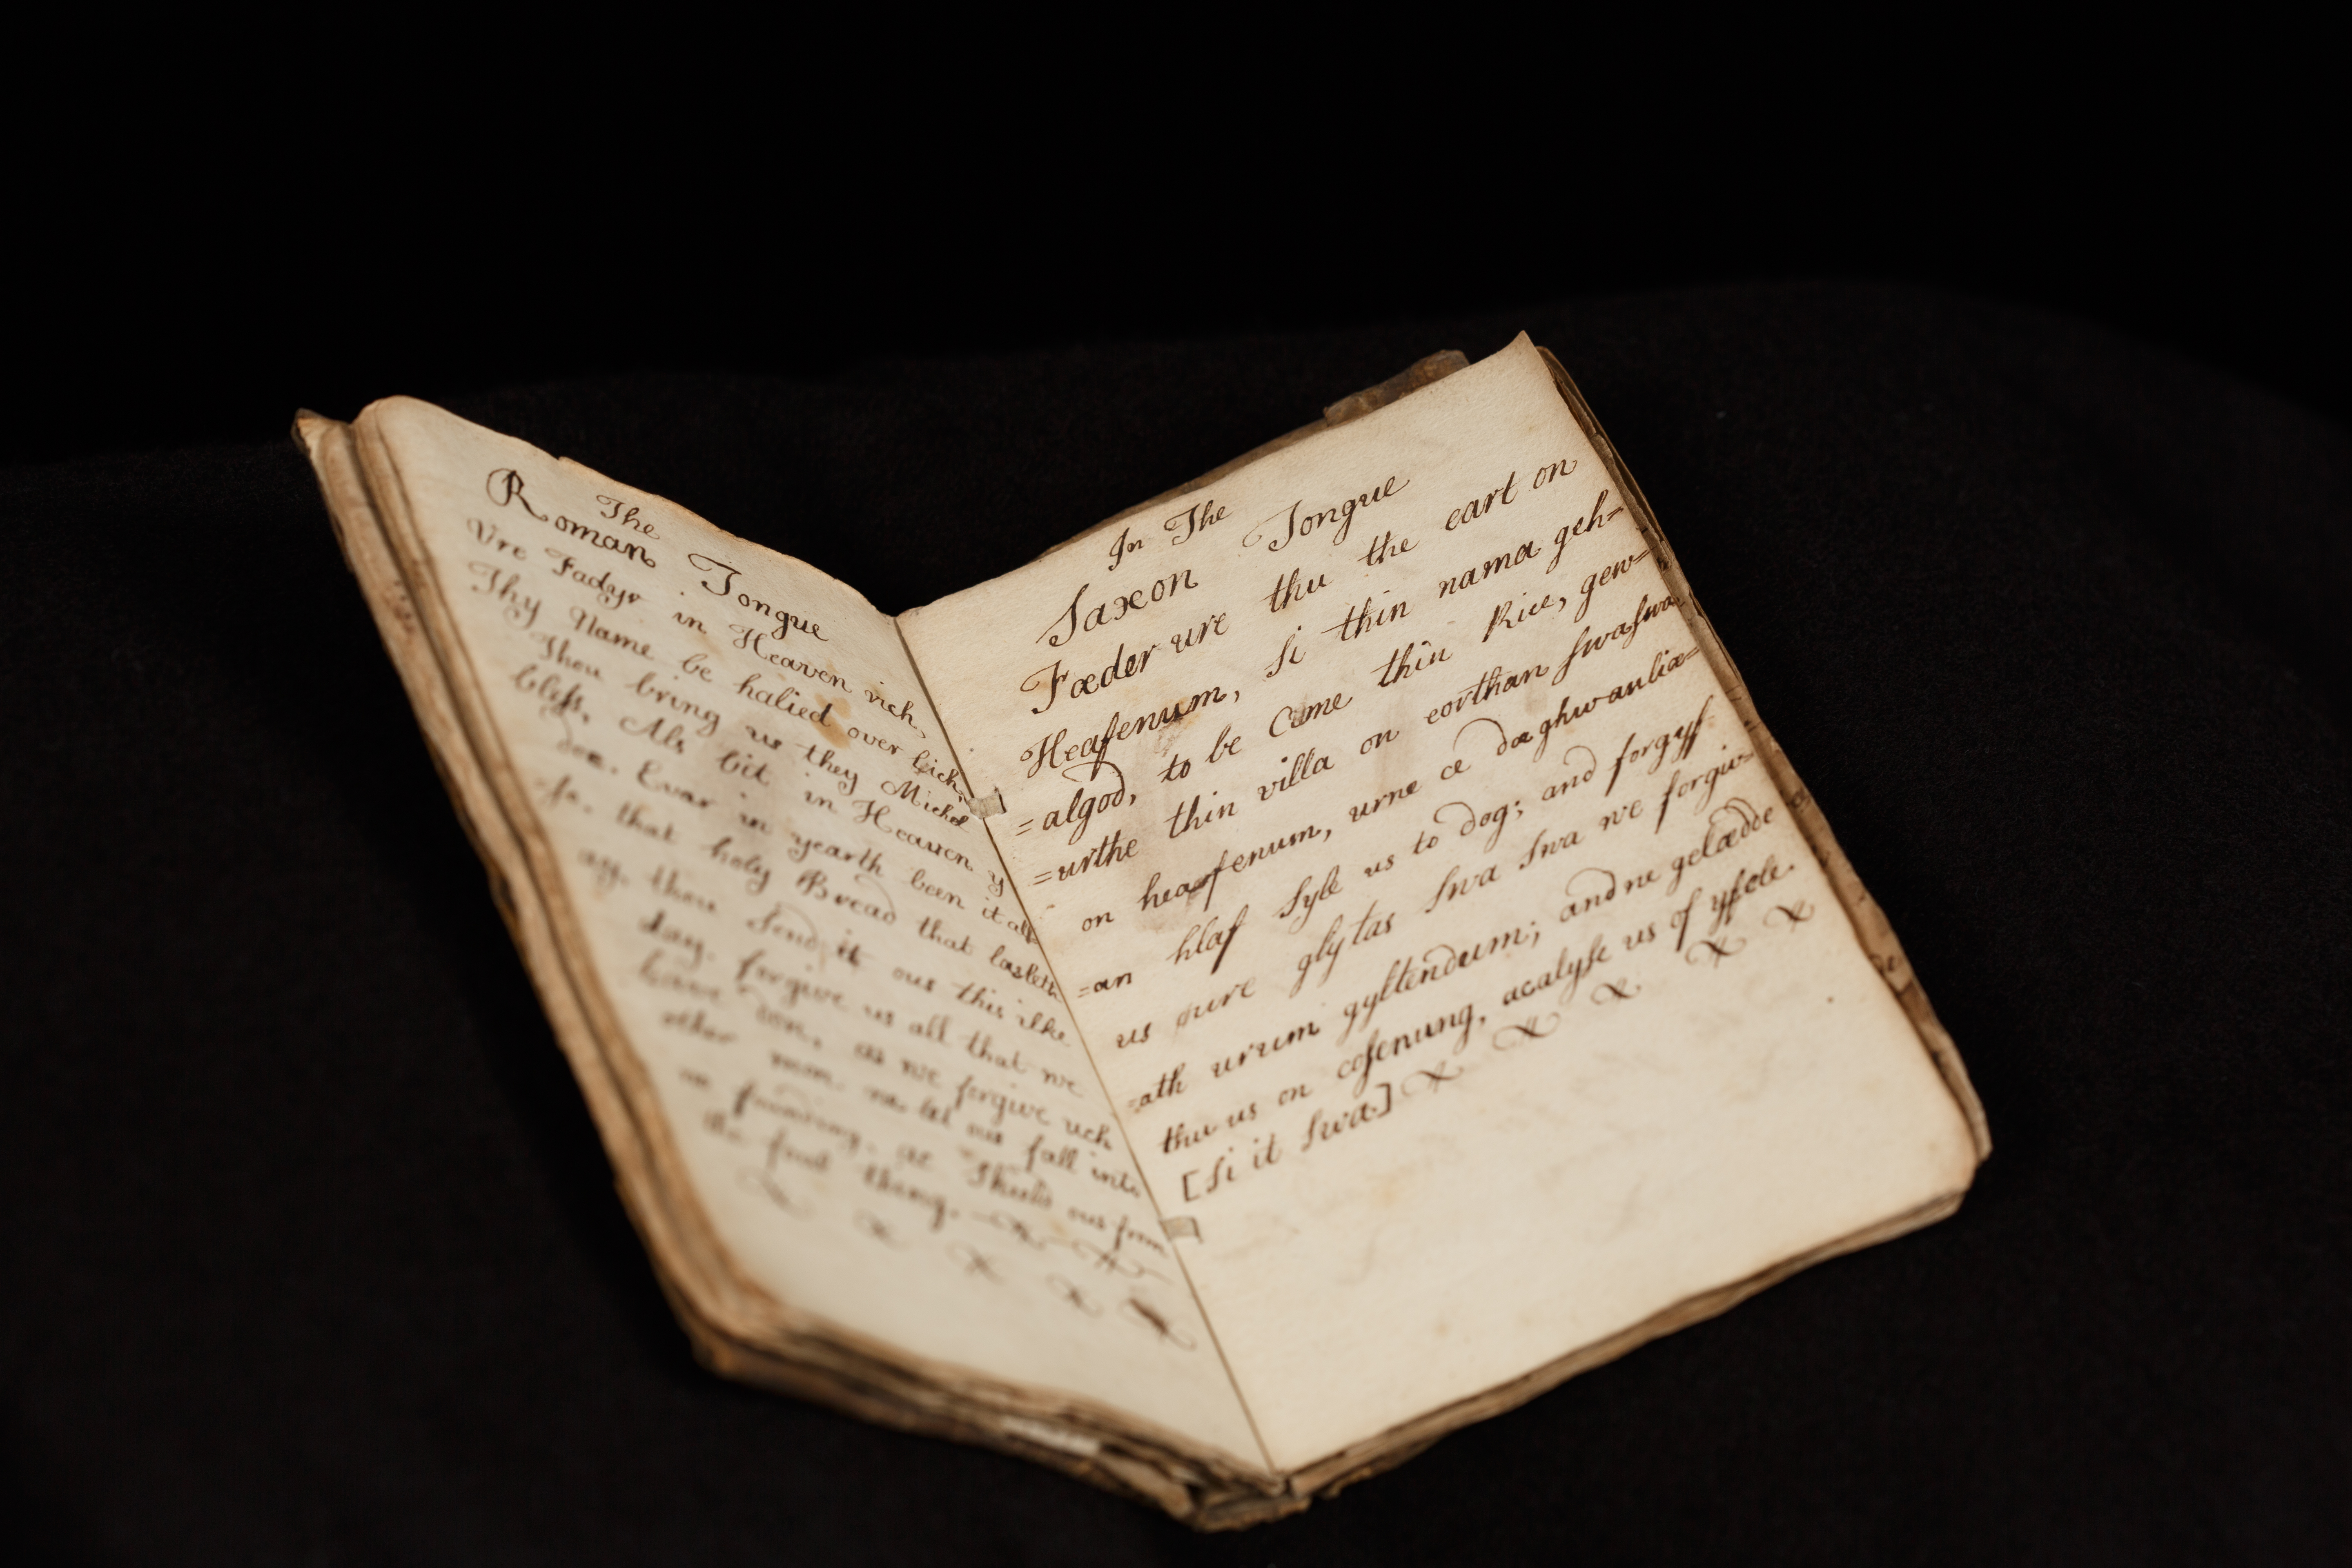 The
Roman Tongue
Ure Fadyr in Heaven rich,
Thy Name be halied over lich,
Thou bring us they Michel
bless, Als bit in Heaven y
doe. Evar in yearth been it als
=so, that holy Bread that lasteth
ay, thou send it ous this ilke
day, forgive us all that we
have don, as we forgive uch
other mon. ne let ous fall into
no founding, ac Shuld ous from
the foul thing.
In The
Saxon Tongue
Fæder ure thu the eart on
Heafenum, si thin nama geh=
=algod, to be Cume thin Rice, gew=
=urthe thin villa on eorthan swa swa
on heafenum, urne ce dæghwanliæ=
=an hlaf syle us to dog; and forgyf
us ure glytas swa swa we forgiv=
=ath urum gyltendum; and ne gelædde
thu us on cosenung, acalyse us of yfele.
[Si it swa.]